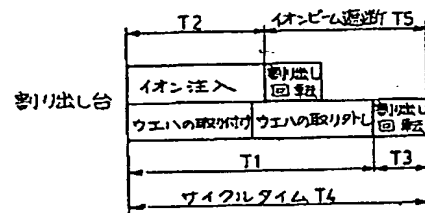 T2
イオンビーム遮断 T5
割り出し台
イオン注入
割り出し
回転
ウエハの取り付け
ウエハの取り外し
割り出し
回転
T1
T3
サイクルタイム T4